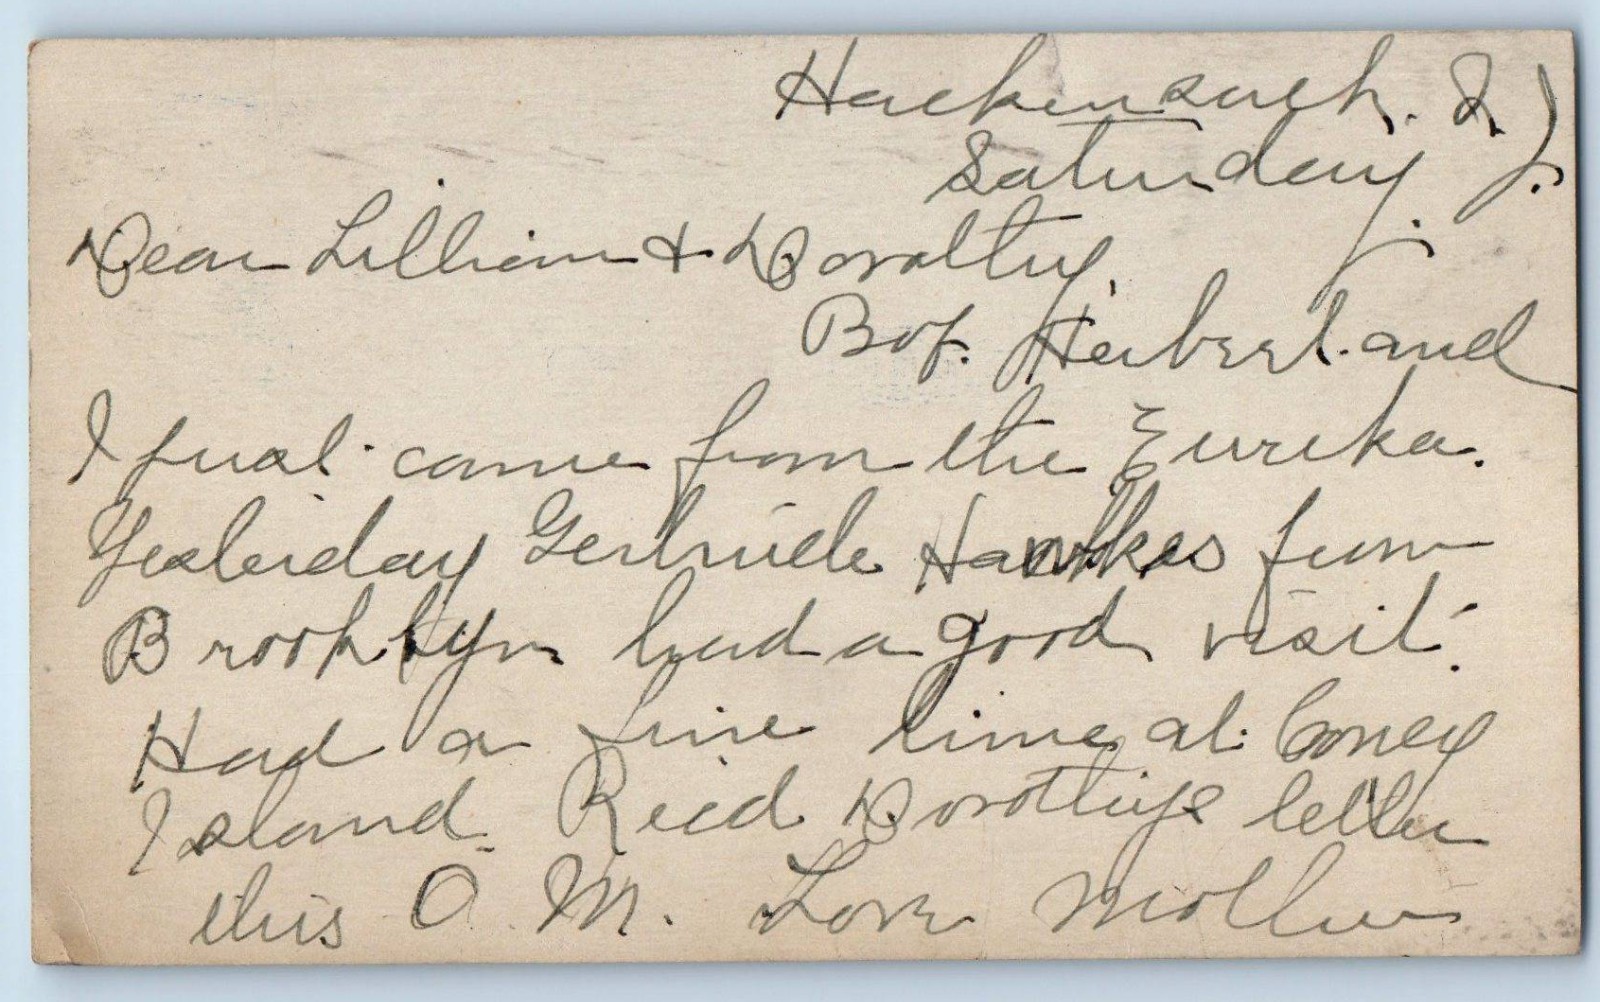 Hackensack. N. J.
Saturday.
Dear Lillian & Dorothy.
Herbert and
I just came from the Eureka.
Yesterday Gertrude Hawkes from
Brooklyn had a good visit.
Had a fine time at Coney
Island. Recd Dorothys letter
this A. M. Love Mother